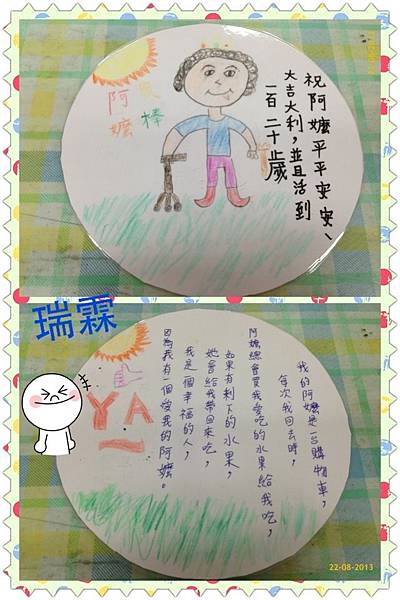 阿嬤
最棒
祝阿嬤平平安安、
大吉大利，並且活到
一百二十歲
瑞霖
YA
我的阿嬤是台購物車，
每次我回去時，
阿嬤總會買我愛吃的水果給我吃，
如果有剩下的水果，
她會給我帶回來吃，
我是個幸福的人，
因為我有一個愛我的阿嬤。
22-08-2013